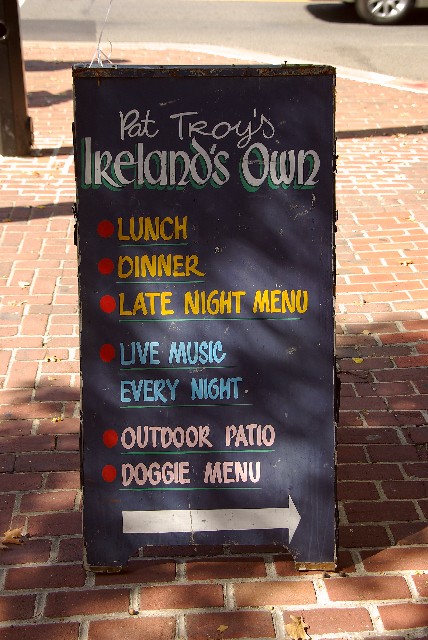 Pat Troy's
Ireland's Own
LUNCH
DINNER
LATE NIGHT MENU
LIVE MUSIC
EVERY NIGHT.
OUTDOOR PATIO
DOGGIE MENU